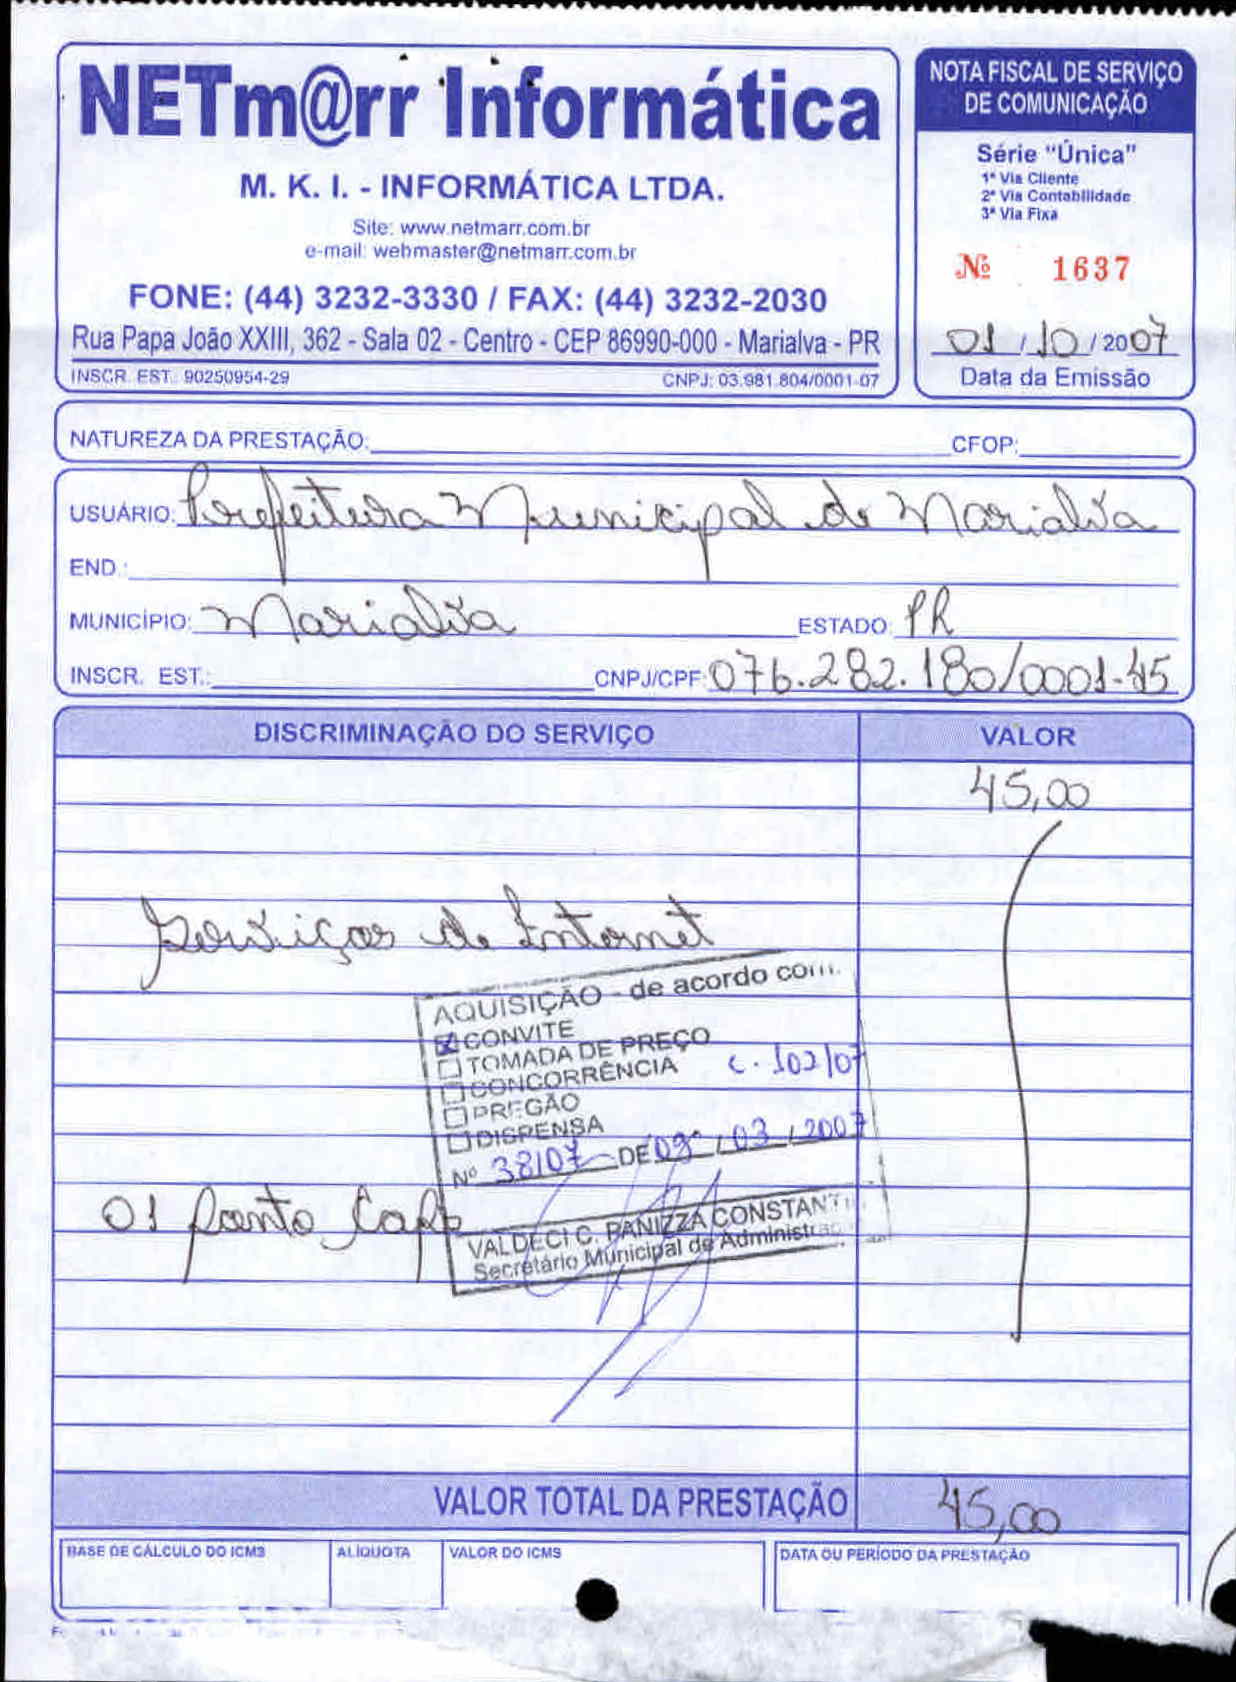 NETm@rr Informática
M. K. I. - INFORMÁTICA LTDA.
Site: www.netmarr.com.br
e-mail: webmaster@netmarr.com.br
FONE: (44) 3232-3330 / FAX: (44) 3232-2030
Rua Papa João XXIII, 362 - Sala 02 - Centro - CEP 86990-000 - Marialva - PR
INSCR. EST.: 90250954-29 CNPJ: 03.981.804/0001-07
NOTA FISCAL DE SERVIÇO
DE COMUNICAÇÃO
Série "Única"
1ª Via Cliente
2ª Via Contabilidade
3ª Via Fixa
Nº 1637
01 / 10 / 2007
Data da Emissão
NATUREZA DA PRESTAÇÃO: CFOP:
USUÁRIO: Prefeitura Municipal de Marialva
END.:
MUNICÍPIO: Marialva ESTADO: PR
INSCR. EST.: CNPJ/CPF: 076.282.180/0001-45
DISCRIMINAÇÃO DO SERVIÇO VALOR
45,00
Serviços de Internet
AQUISIÇÃO - de acordo com.
CONVITE
TOMADA DE PREÇO
CONCORRÊNCIA C. 102/07
PREGÃO
DISPENSA
Nº 38/07 DE 09 / 03 / 2007
01 ponto
VALDECI C. PANIZZA CONSTANTI
Secretário Municipal de Administraç
VALOR TOTAL DA PRESTAÇÃO 45,00
BASE DE CÁLCULO DO ICMS ALÍQUOTA VALOR DO ICMS DATA OU PERÍODO DA PRESTAÇÃO